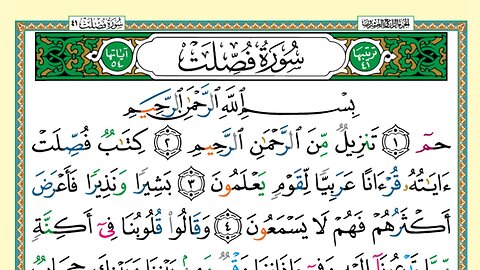 سُورَةُ فُصِّلَتْ ٤١
ترتيبها ٤١ سُورَةُ فُصِّلَتْ آياتها ٥٤
بِسْمِ ٱللَّهِ ٱلرَّحْمَٰنِ ٱلرَّحِيمِ
حمٓ ١ تَنزِيلٌ مِّنَ ٱلرَّحْمَٰنِ ٱلرَّحِيمِ ٢ كِتَٰبٌ فُصِّلَتْ
ءَايَٰتُهُۥ قُرْءَانًا عَرَبِيًّا لِّقَوْمٍ يَعْلَمُونَ ٣ بَشِيرًا وَنَذِيرًا فَأَعْرَضَ
أَكْثَرُهُمْ فَهُمْ لَا يَسْمَعُونَ ٤ وَقَالُوا۟ قُلُوبُنَا فِىٓ أَكِنَّةٍ